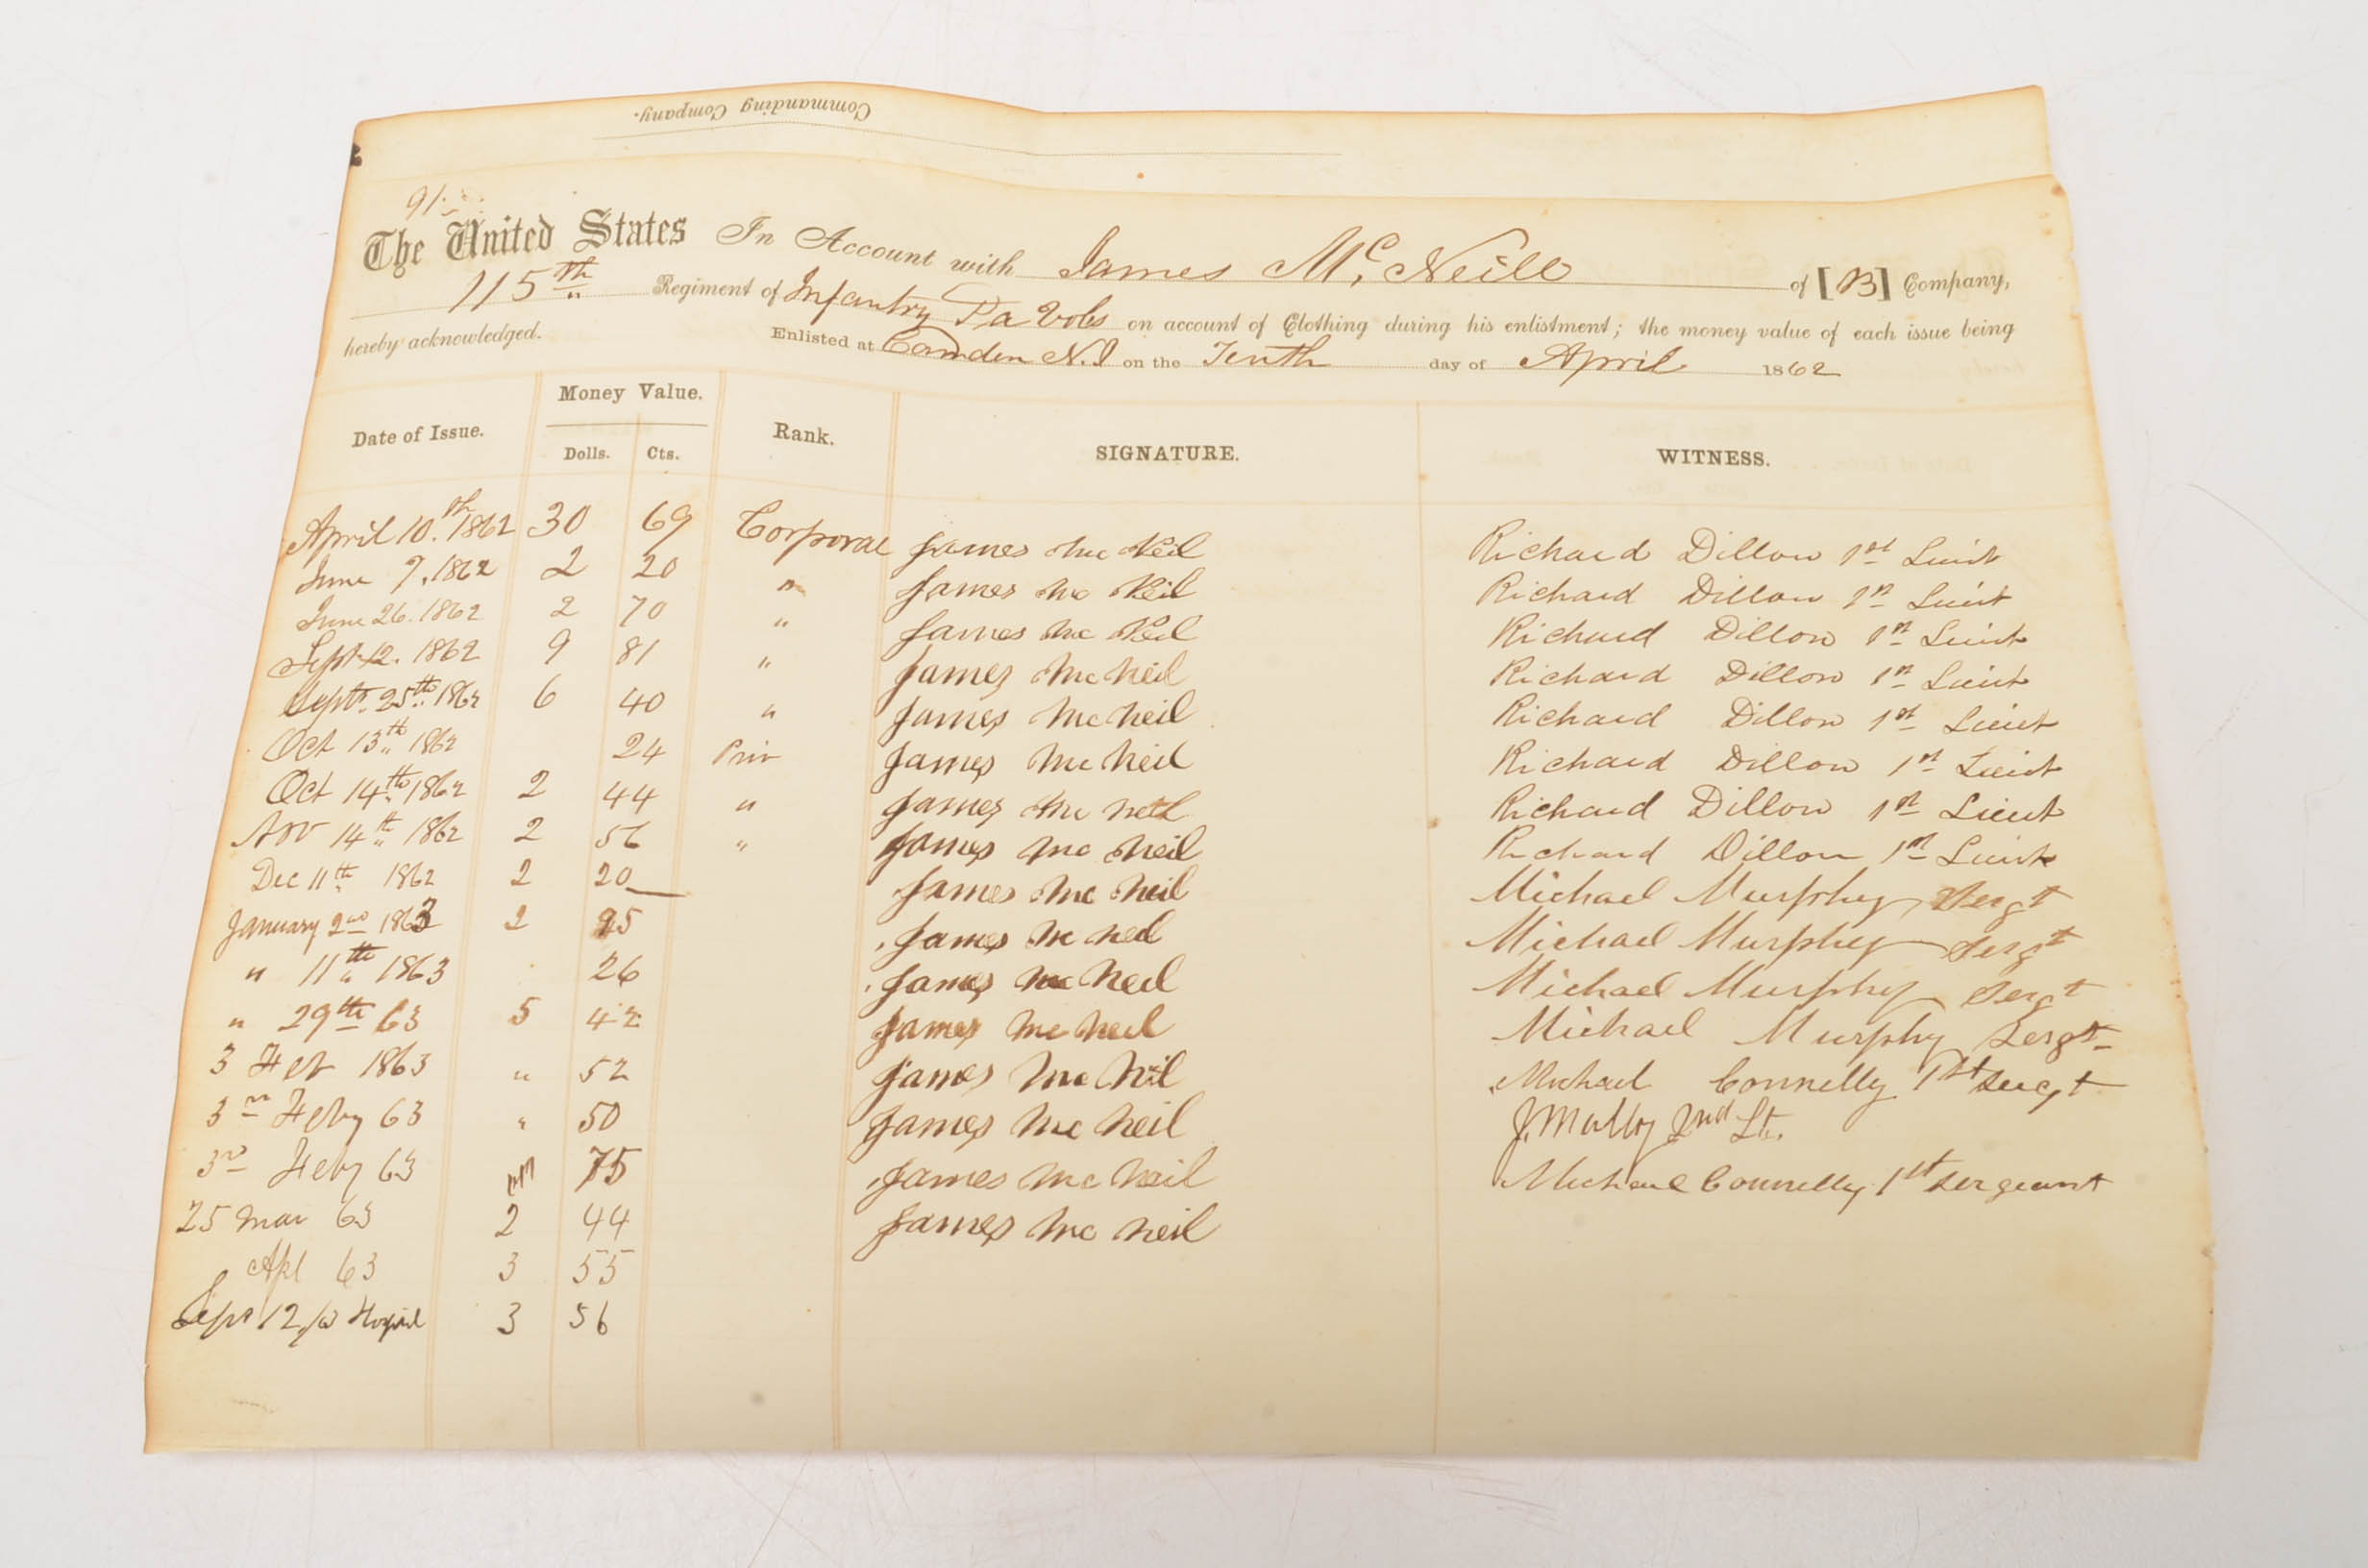 Commanding Company.
The United States In Account with James Mc. Neill of [B] Company,
115th Regiment of Infantry Pa Vols on account of Clothing during his enlistment; the money value of each issue being
hereby acknowledged. Enlisted at Camden N.J on the Tenth day of April 1862
Date of Issue. Money Value. Rank. SIGNATURE. WITNESS.
Dolls. Cts.
April 10.th 1862 30 69 Corporal James Mc Neil Richard Dillon 1st Lieut
June 7. 1862 2 20 " James Mc Neil Richard Dillon 1st Lieut
June 26. 1862 2 70 " James Mc Neil Richard Dillon 1st Lieut
Sept 12. 1862 9 81 " James Mc Neil Richard Dillon 1st Lieut
Sept. 25th 1862 6 40 " James Mc Neil Richard Dillon 1st Lieut
Oct 13th 1862 24 Priv James Mc Neil Richard Dillon 1st Lieut
Oct 14th 1862 2 44 " James Mc Neil Richard Dillon 1st Lieut
Nov 14th 1862 2 56 " James Mc Neil Richard Dillon 1st Lieut
Dec 11th 1862 2 20 James Mc Neil Michael Murphy Sergt
January 2nd 1863 2 James Mc Neil Michael Murphy Sergt
" 11th 1863 26 James Mc Neil Michael Murphy Sergt
" 29th 63 5 42 James Mc Neil Michael Murphy Sergt
3 Feb 1863 " 52 James Mc Neil Michael Connelly 1st Sergt
3rd Feby 63 " 50 James Mc Neil J. Malloy 2nd Lt.
3rd Feby 63 75 James Mc Neil Michael Connelly 1st Sergeant
25 Mar 63 2 44 James Mc Neil
Apl 63 3 55
Sept 12, 63 3 56